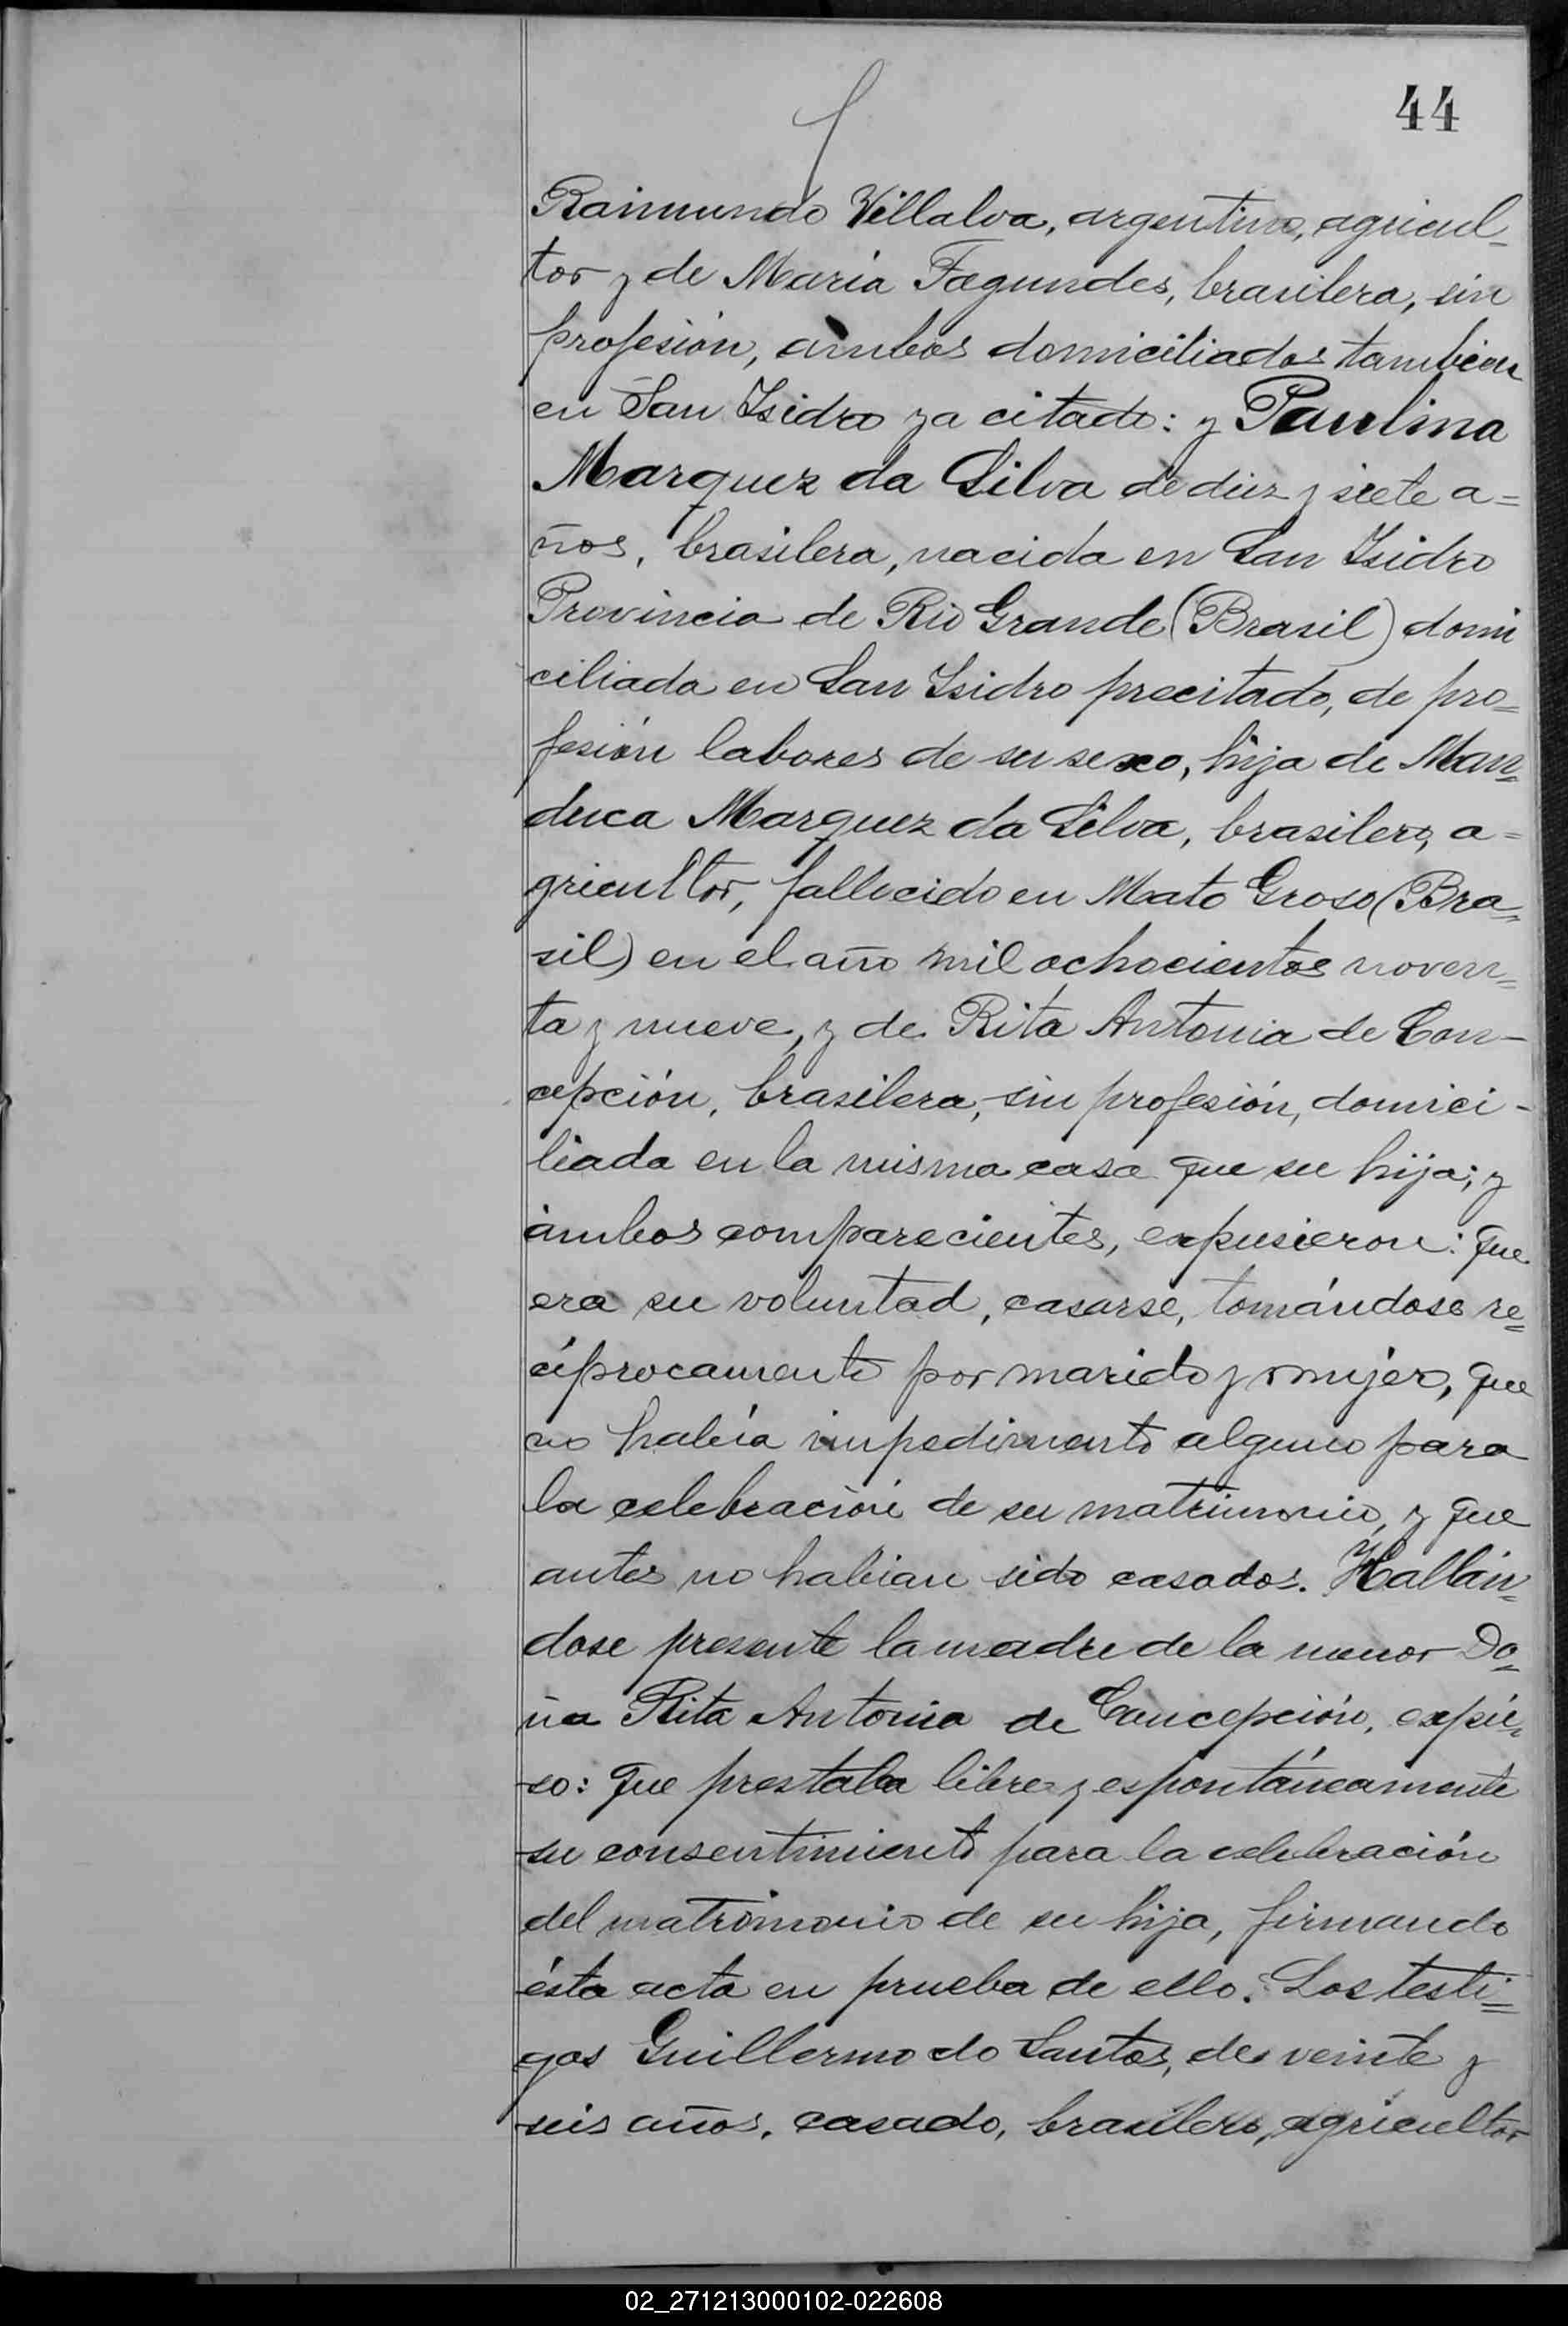 44
Raimundo Villalva, argentino, agricul-
tor y de María Fagundes, brasilera, sin
profesión, ambos domiciliados tambien
en San Isidro ya citado: y Paulina
Marquez da Silva de diez y siete a=
ños, brasilera, nacida en San Isidro
Provincia de Rio Grande (Brasil) domi
ciliada en San Isidro precitado, de pro=
fesión labores de su sexo, hija de Man=
duca Marquez da Silva, brasilero, a=
gricultor, fallecido en Mato Groso (Bra=
sil) en el año mil ochocientos noven=
ta y nueve, y de Rita Antonia de Con-
cepción, brasilera, sin profesión, domici-
liada en la misma casa que su hija; y
ámbos comparecientes, expusieron: que
era su voluntad, casarse, tomándose re=
cíprocamente por marido y mujer, que
no había impedimento alguno para
la celebración de su matrimonio, y que
antes no habian sido casados. Hallán=
dose presente la madre de la menor Do=
ña Rita Antonia de Concepción, expú=
so: que prestaba libre y espontáneamente
su consentimiento para la celebración
del matrimonio de su hija, firmando
ésta acta en prueba de ello. Los testi=
gos Guillermo do Santos, de veinte y
seis años, casado, brasilero, agricultor
02_271213000102-022608